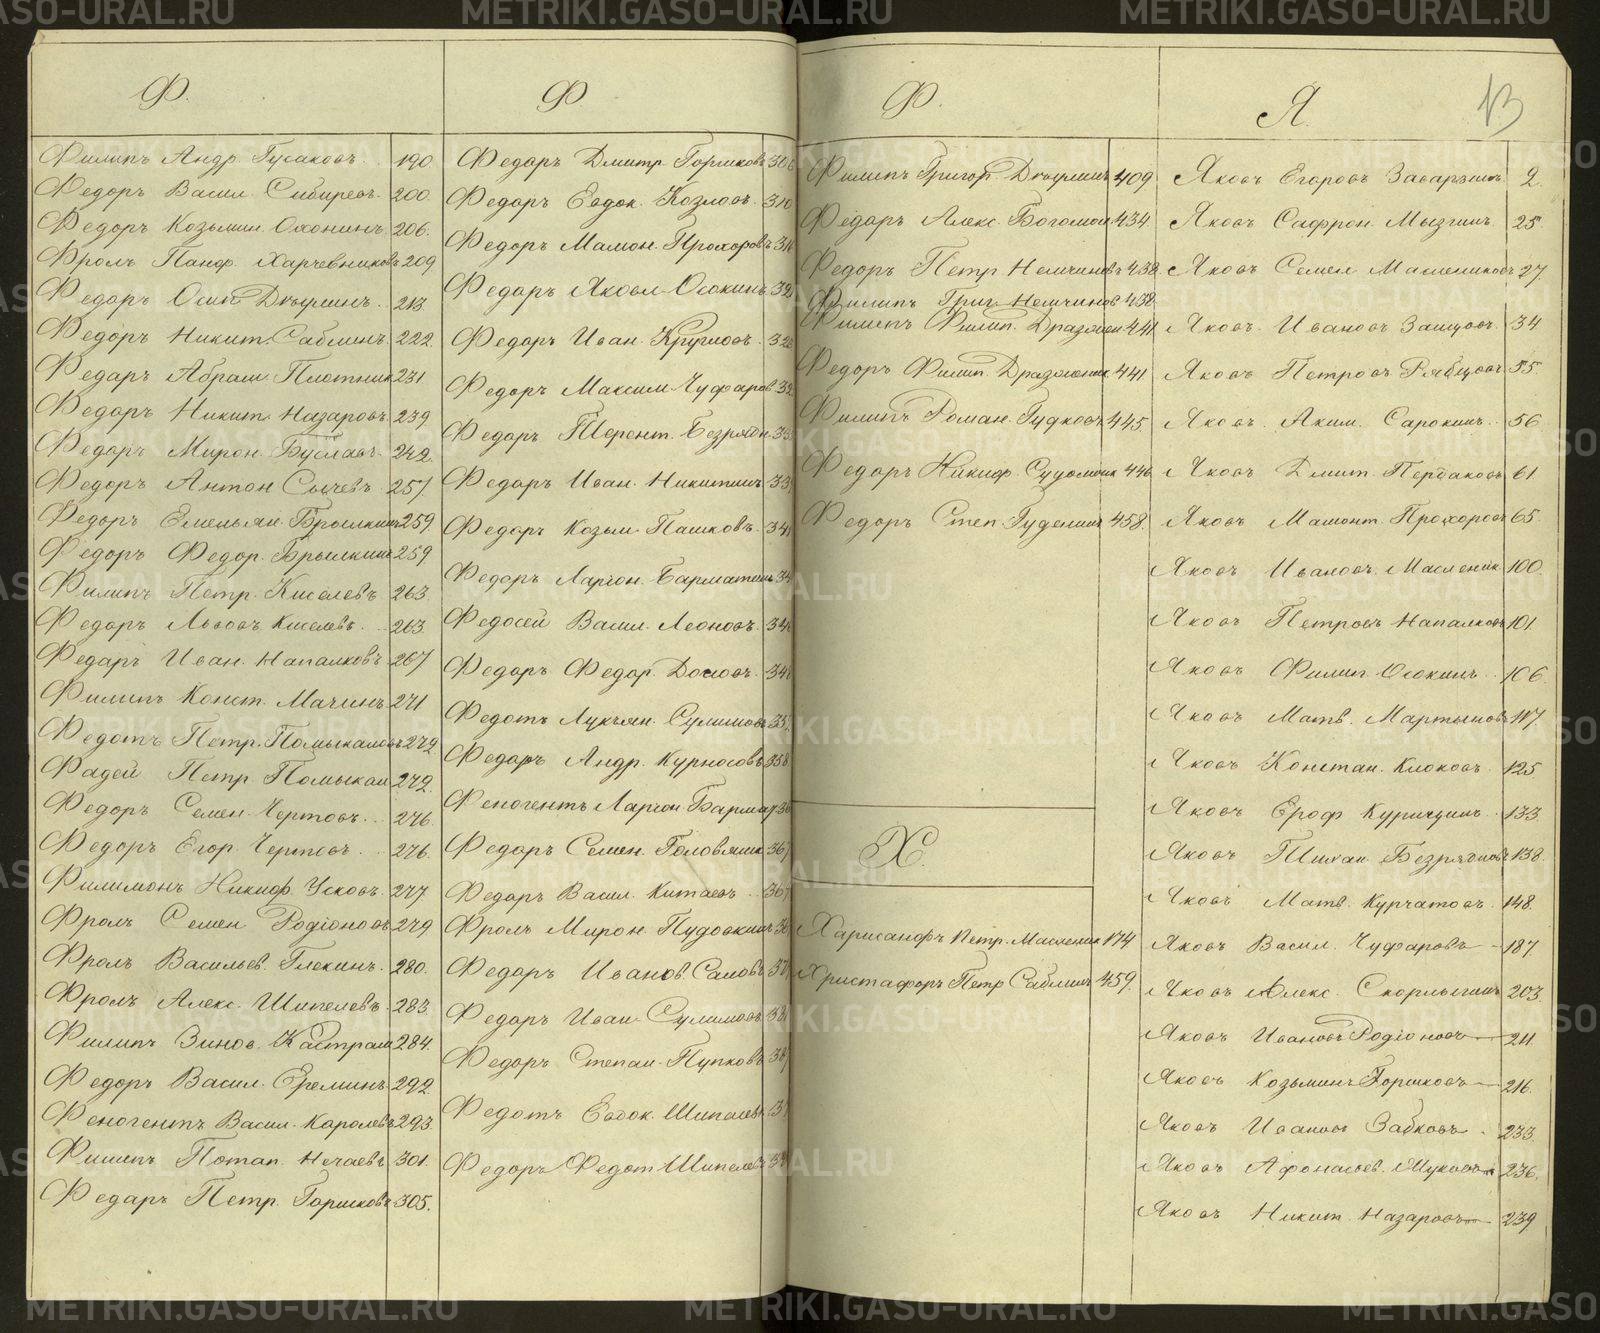 METRIKI.GASO-URAL.RU
Ф.
Филипъ Андр. Гусаковъ. 190
Федоръ Васил. Сибиревъ. 200
Федоръ Козьмин. Охонинъ 206.
Фролъ Панф. Харчевниковъ 209
Федаръ Осип. 213.
Федоръ Никит. Саблинъ 222.
Федаръ Абрам. Плотник 231
Федоръ Никит. Назаровъ. 239
Федаръ Мирон. Буславъ. 242.
Федоръ Антон Сычевъ. 257
Федоръ Емельян. Брылкинъ 259.
Федоръ Федор. Брылкинъ 259
Филипъ Петр. Киселевъ 263.
Федаръ Львовъ Киселевъ. 263.
Федаръ Иван. Напалковъ 267
Филипъ Конст. Мачинъ 271
Федотъ Петр. Помыкаловъ 272
Фадей Петр Помыкал 272.
Федоръ Семен. Чертовъ. 276.
Федоръ Егор. Чертовъ. 276.
Филимонъ Никиф. Усковъ. 277
Фролъ Семен Родіоновъ 279
Фролъ Васильев. Глекинъ. 280.
Фролъ Алекс. Шипелевъ. 283.
Филипъ Зинов. 284.
Федоръ Васил. Ереминъ 292
Феногентъ Васил. Каролевъ 293.
Филипъ Потап. Нечаевъ 301.
Федаръ Петр. Горшковъ 305.
Ф
Федаръ Дмитр. Горшковъ
Федаръ Евдок. Козловъ. 310
Федоръ Мамон. Прохоровъ
Федаръ Яковл. Осокинъ
Федаръ Иван. Кругловъ.
Федоръ Максим. Чуфаров
Федаръ Терент. Безрядн
Федаръ Иван. Никитинъ
Федоръ Козьм. Пашковъ.
Федоръ Ларіон.
Федосей Васил. Леоновъ.
Федоръ Федор.
Федотъ Лукьян. Сулимовъ
Федаръ Андр. Курносовъ 358
Феногентъ Ларіон
Федаръ Семен.
Федоръ Васил. Китаевъ
Фролъ Мирон. Пудовкинъ
Федаръ Иванов
Федаръ Иван. Сулимовъ
Федоръ Степан. Пупковъ
Федотъ Евдок. Шипелевъ
Федоръ Федот Шипелевъ
Ф.
Филипъ Григор. 409
Федаръ Алекс. Богомол 434.
Федоръ Петр Немчиновъ 438.
Филипъ Григ. Немчинов 438.
Филипъ Филип. 441
Федоръ Филип. 441
Филипъ Роман. Гудковъ 445.
Федоръ Никиф. 446
Федоръ Степ. Гуденинъ 458.
Х.
Харисанфъ Петр. Масленик 174
Христафоръ Петр Саблинъ 459.
Я.
13
Яковъ Егоровъ Заварзинъ 2.
Яковъ Сафрон. Мызгинъ 25.
Яковъ Семен Маслениковъ 27
Яковъ Ивановъ 34
Яковъ Петровъ Рябцовъ 55.
Яковъ Аким. Сарокинъ. 56
Яковъ Дмит. Пербаковъ 61.
Яковъ Мамонт. Прохоровъ 65.
Яковъ Ивановъ. Масленик 100.
Яковъ Петровъ Напалковъ 101.
Яковъ Филип. Осокинъ. 106.
Яковъ Матв. Мартыновъ 117.
Яковъ Констан. Клоковъ 125
Яковъ Ероф. Курицинъ. 133.
Яковъ Тихан. Безрядновъ 138.
Яковъ Матв. Курчатовъ. 148.
Яковъ Васил. Чуфаровъ 187.
Яковъ Алекс. Скорлыгинъ 203.
Яковъ Ивановъ Родіоновъ 211.
Яковъ Козьминъ Горшковъ 216.
Яковъ Ивановъ Забковъ. 233.
Яковъ Афонасьев. 236.
Яковъ Никит. Назаровъ 239